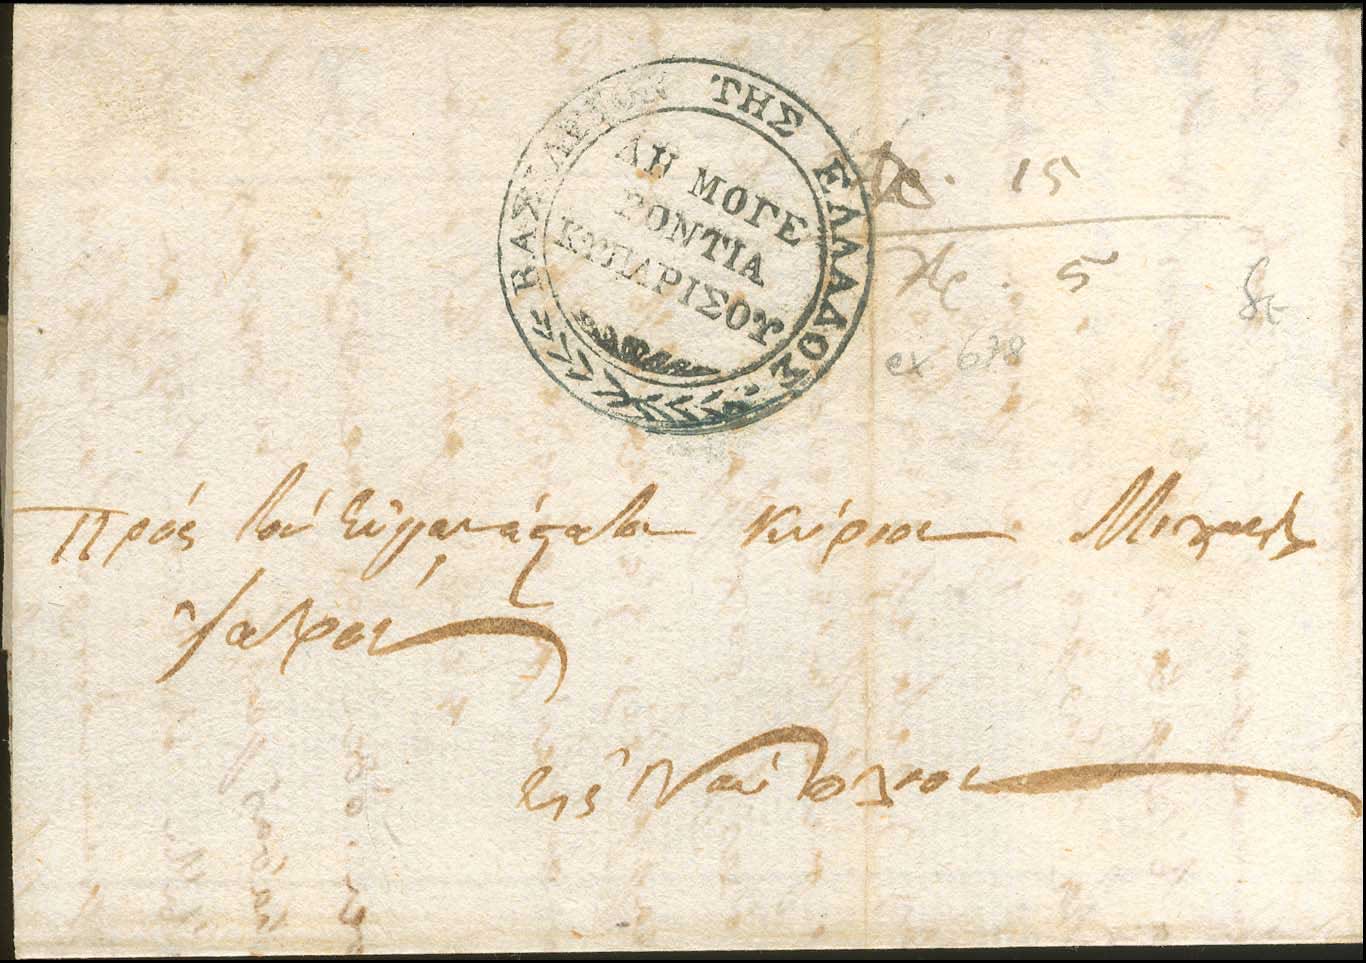 ΒΑΣΙΛΕΙΟΝ ΤΗΣ ΕΛΛΑΔΟΣ
ΔΗ ΜΟΓΕ
ΡΟΝΤΙΑ
ΚΥΠΑΡΙΣΟΥ
15
5
ex 678
Πρός τόν Εὐγενέστατον Κύριον
Ἰατρόν
εἰς Ναύπλιον